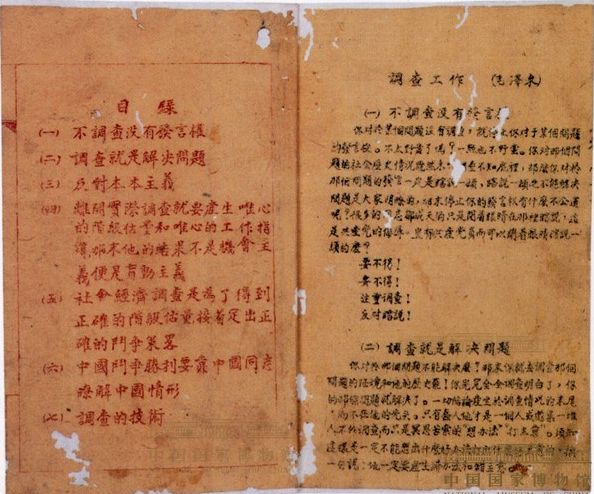 目錄
(一) 不調查没有發言權
(二) 調查就是解决問題
(三) 反對本本主義
(四) 離開實際調查就要產生唯心
的階級估量和唯心的工作指
導,那末他的結果不是機會主
義便是盲動主義
(五) 社會經濟調查是為了得到
正確的階級估量接着定出正
確的鬥爭策畧
(六) 中國鬥爭勝利要靠中國同志
療解中國情形
(七) 調查的技術
調查工作 (毛澤東)
(一) 不調查没有發言
你對於某個問題没有調查,就停止你對于某個問題
的發言權。不太野蛮了嗎?一點也不野蛮。你對那個問
題的社會歷史情况既然未調查不知底裡,那麽你對於
那個問題的發言一定是瞎說一頓。瞎說一頓之不能解决
問題是大家清晰的,那末停止你的發言權有什麽不公道
呢?很多的同志都成天的只是閉着眼睛在那裡瞎說,這
是共產党的侮辱,豈有共產党員而可以閉着眼睛瞎說一
頓的麽?
要不得!
要不得!
注重調查!
反对瞎說!
(二) 調查就是解决問題
你对於那個問題不能解决麽?那末你就去調查那個
問題的現狀和他的歷史罷!你完完全全調查明白了,你
的那個問題就解决了。一切結論產生於調查情况的末尾
而不在他的先头。只有蠢人他才是一個人或邀集一堆
人不作調查而只是冥思苦索的"想办法""打主意"。須知
這樣是一定不能想出什麽好办法打出什麽好主意的。換
一句說:他一定要產生錯办法和錯主意
中国国家博物馆